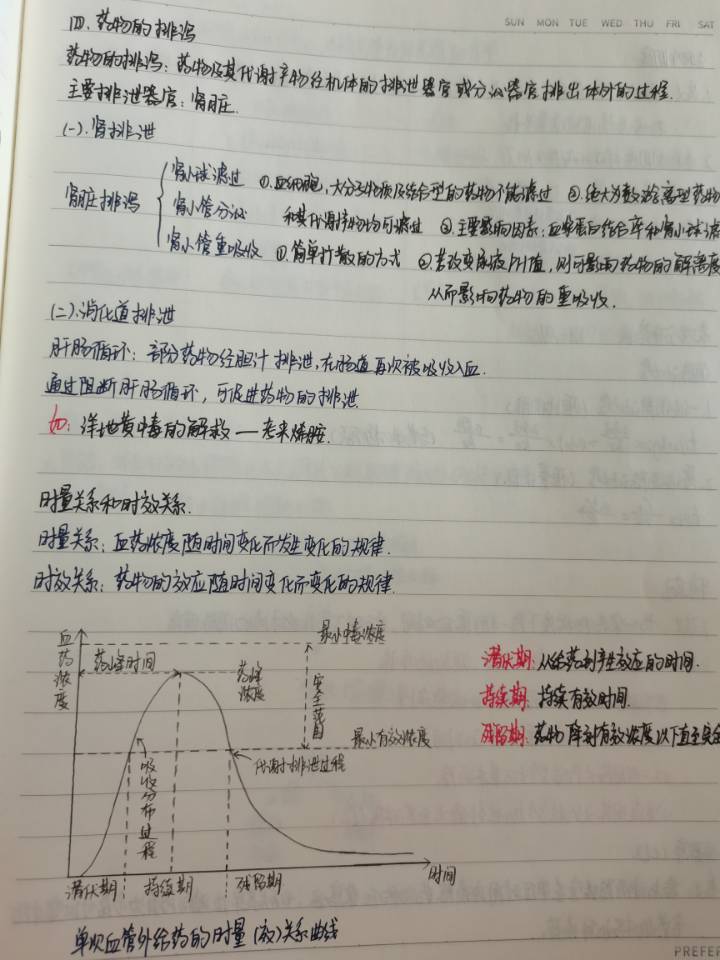 SUN MON TUE WED THU FRI SAT
四. 药物的排泻
药物的排泻: 药物及其代谢产物经机体的排泄器官或分泌器官排出体外的过程.
主要排泄器官: 肾脏.
(一). 肾排泄
肾脏排泻
肾小球滤过 ①.血细胞, 大分子物质及结合型的药物不能滤过 ②.绝大多数游离型药物
肾小管分泌 和其代谢产物均可滤过 ③.主要影响因素: 血浆蛋白结合率和肾小球滤
肾小管重吸收 ①.简单扩散的方式 ②.若改变尿液PH值, 则可影响药物的解离度
从而影响药物的重吸收.
(二).消化道排泄
肝肠循环: 部分药物经胆汁排泄, 在肠道再次被吸收入血.
通过阻断肝肠循环, 可促进药物的排泄
如: 洋地黄中毒的解救 — 考来烯胺.
时量关系和时效关系.
时量关系: 血药浓度随时间变化而发生变化的规律.
时效关系: 药物的效应随时间变化而变化的规律.
血药浓度
最小中毒浓度
药峰时间
药峰浓度
安全范围
潜伏期: 从给药到产生效应的时间.
持续期: 持续有效时间.
残留期: 药物降到有效浓度以下直至完全
最小有效浓度
代谢排泄过程
吸收分布过程
时间
潜伏期 持续期 残留期
单次血管外给药的时量(效)关系曲线
PREFE